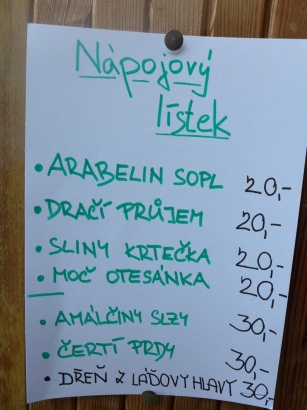 Nápojový
lístek
• ARABELIN SOPL 20,-
• DRAČÍ PRŮJEM 20,-
• SLINY KRTEČKA 20,-
• MOČ OTESÁNKA 20,-
• AMÁLČINY SLZY 30,-
• ČERTÍ PRDY 30,-
• DŘEŇ Z LÁĎOVY HLAVY 30,-